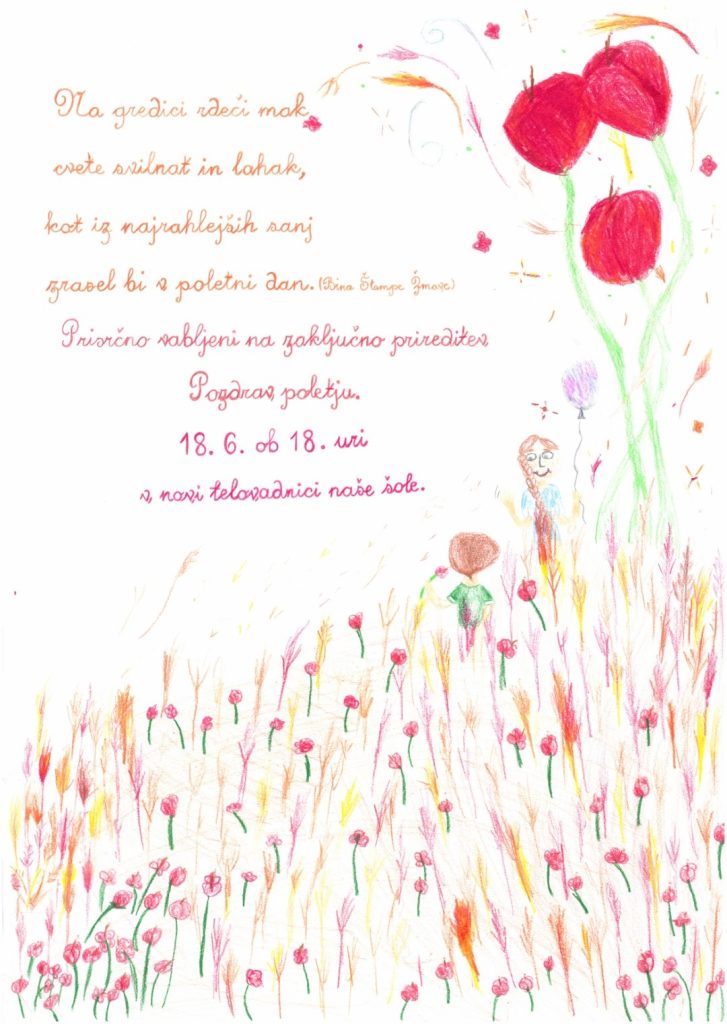 Na gredici rdeči mak
cvete svilnat in lahak,
kot iz najrahlejših sanj
zrasel bi v poletni dan. (Bina Štampe Žmavc)
Prisrčno vabljeni na zaključno prireditev
Pozdrav poletju.
18. 6. ob 18. uri
v novi telovadnici naše šole.